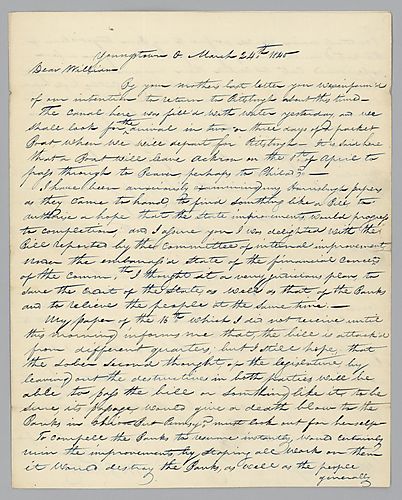 Youngtown O March 24th 1840
Dear William
By your mothers last letter you was inform'd
of our intention to return to Pittsbgh about this time
The Canal here was fill'd with water yesterday and we
shall look for the arrival in two or three days of a packet
Boat when we will depart for Pittsbgh - It is said here
that a Boat will leave Ackron on the 1st of April to
pass through to Beaver perhaps to Philada
I have been anxiously examining my Harrisbgh papers
as they came to hand, to find something like a Bill to
authorise a hope that the State improvements would progress
to completion, and I assure you I was delighted with the
Bill reported by the Committee of internal improvement
Under the embarrass'd State of the financial Concerns
of the Comm.th I thought it a very judicious plan to
save the Credit of the State as well as that of the Banks
and to relieve the people at the same time
My paper of the 18th which I did not receive until
this morning informs me that the bill is attack'd
from different quarters, but I still hope that
the sober second thought of the legislature by
leaving out the destructives in both parties will be
able to pass the bill or something like it, to be
sure its passage would give a death blow to the
Banks in Ohio But Pennsya must look out for herself
To compell the Banks to resume instantly would certainly
ruin the improvements by stoping all work on them
it would destroy the Banks, as well as the people
generally